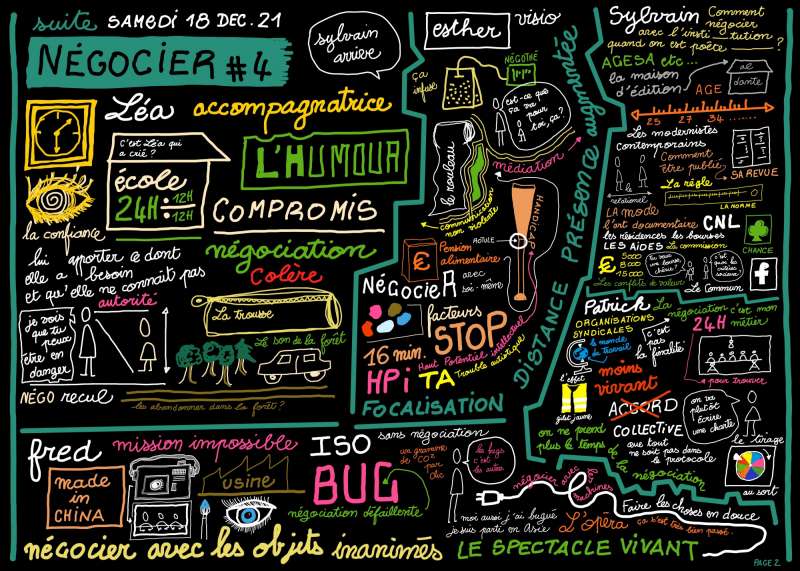 suite SAMEDI 18 DEC. 21
NÉGOCIER #4
sylvain
arrive
Léa accompagnatrice
C'est Léa qui
a crié?
école
24H
12H
12H
L'HUMOUR
COMPROMIS
la confiance
négociation
Colère
lui apporter ce dont
elle a besoin
et qu'elle ne connaît pas
autorité
je vois
que tu
peux
être en
danger
NÉGO recul
La Trousse
Le son de la forêt
les abandonner dans la forêt?
esther visio
ça
infuse
NÉGOTHÉ
est-ce que
ça va
pour
toi, ça?
le rouleau
médiation
communication
non violente
HANDICAP
ROTULE
Pension
alimentaire
€
NÉGOCIER avec
soi-même
facteurs
STOP
16 min.
Haut Potentiel intellectuel
HPi TA Trouble autistique
FOCALISATION
DISTANCE PRÉSENCE augmentée
Sylvain Comment
négocier
avec l'insti_tution
quand on est poète ?
AGESA etc...
la maison
d'édition
AGE
aé
dante
25 27 34 ......
Les modernistes
contemporains
Comment
être publié
SA REVUE
relationnel
La règle
LA NORME
LA MODE
l'art documentaire
CNL
les résidences les bourses
LES AIDES La commission
CHANCE
€
5000
8000
15 000
Les conflits de valeur
Le Commun
f
Patrick La
négociation c'est mon
métier
ORGANISATIONS
SYNDICALES
24H
le monde
du travail
c'est
pas la
finalité
pour trouver
l'effet
gilet jaune
moins
vivant
ACCORD
COLLECTIVE
on va
plutôt
écrire
une charte
on ne prend
plus le temps de la négociation
que tout
ne soit pas dans
le protocole
le tirage
au sort
fred mission impossible
made
in
CHINA
usine
ISO
BUG
sans négociation
un gramme
de CO2
par
clic
négociation défaillente
le bug
c'est
les autres
négocier avec
machines
moi aussi j'ai bugué
je suis parti en Asie
Faire les choses en douce
L'opéra ça s'est très bien passé.
négocier avec les objets inanimés
LE SPECTACLE VIVANT
PAGE 2